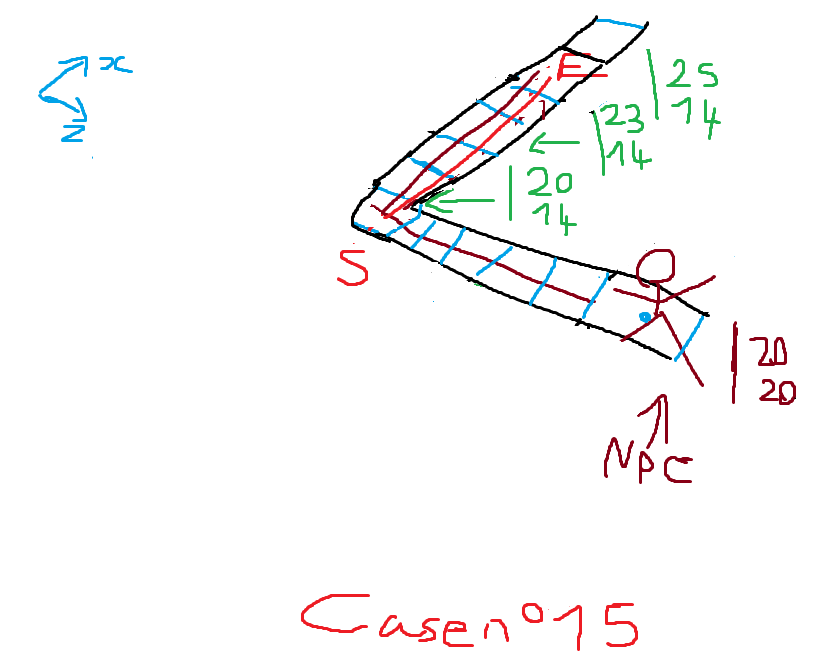 x
z
E
25
14
23
14
20
14
S
20
20
NPC
Case n°15